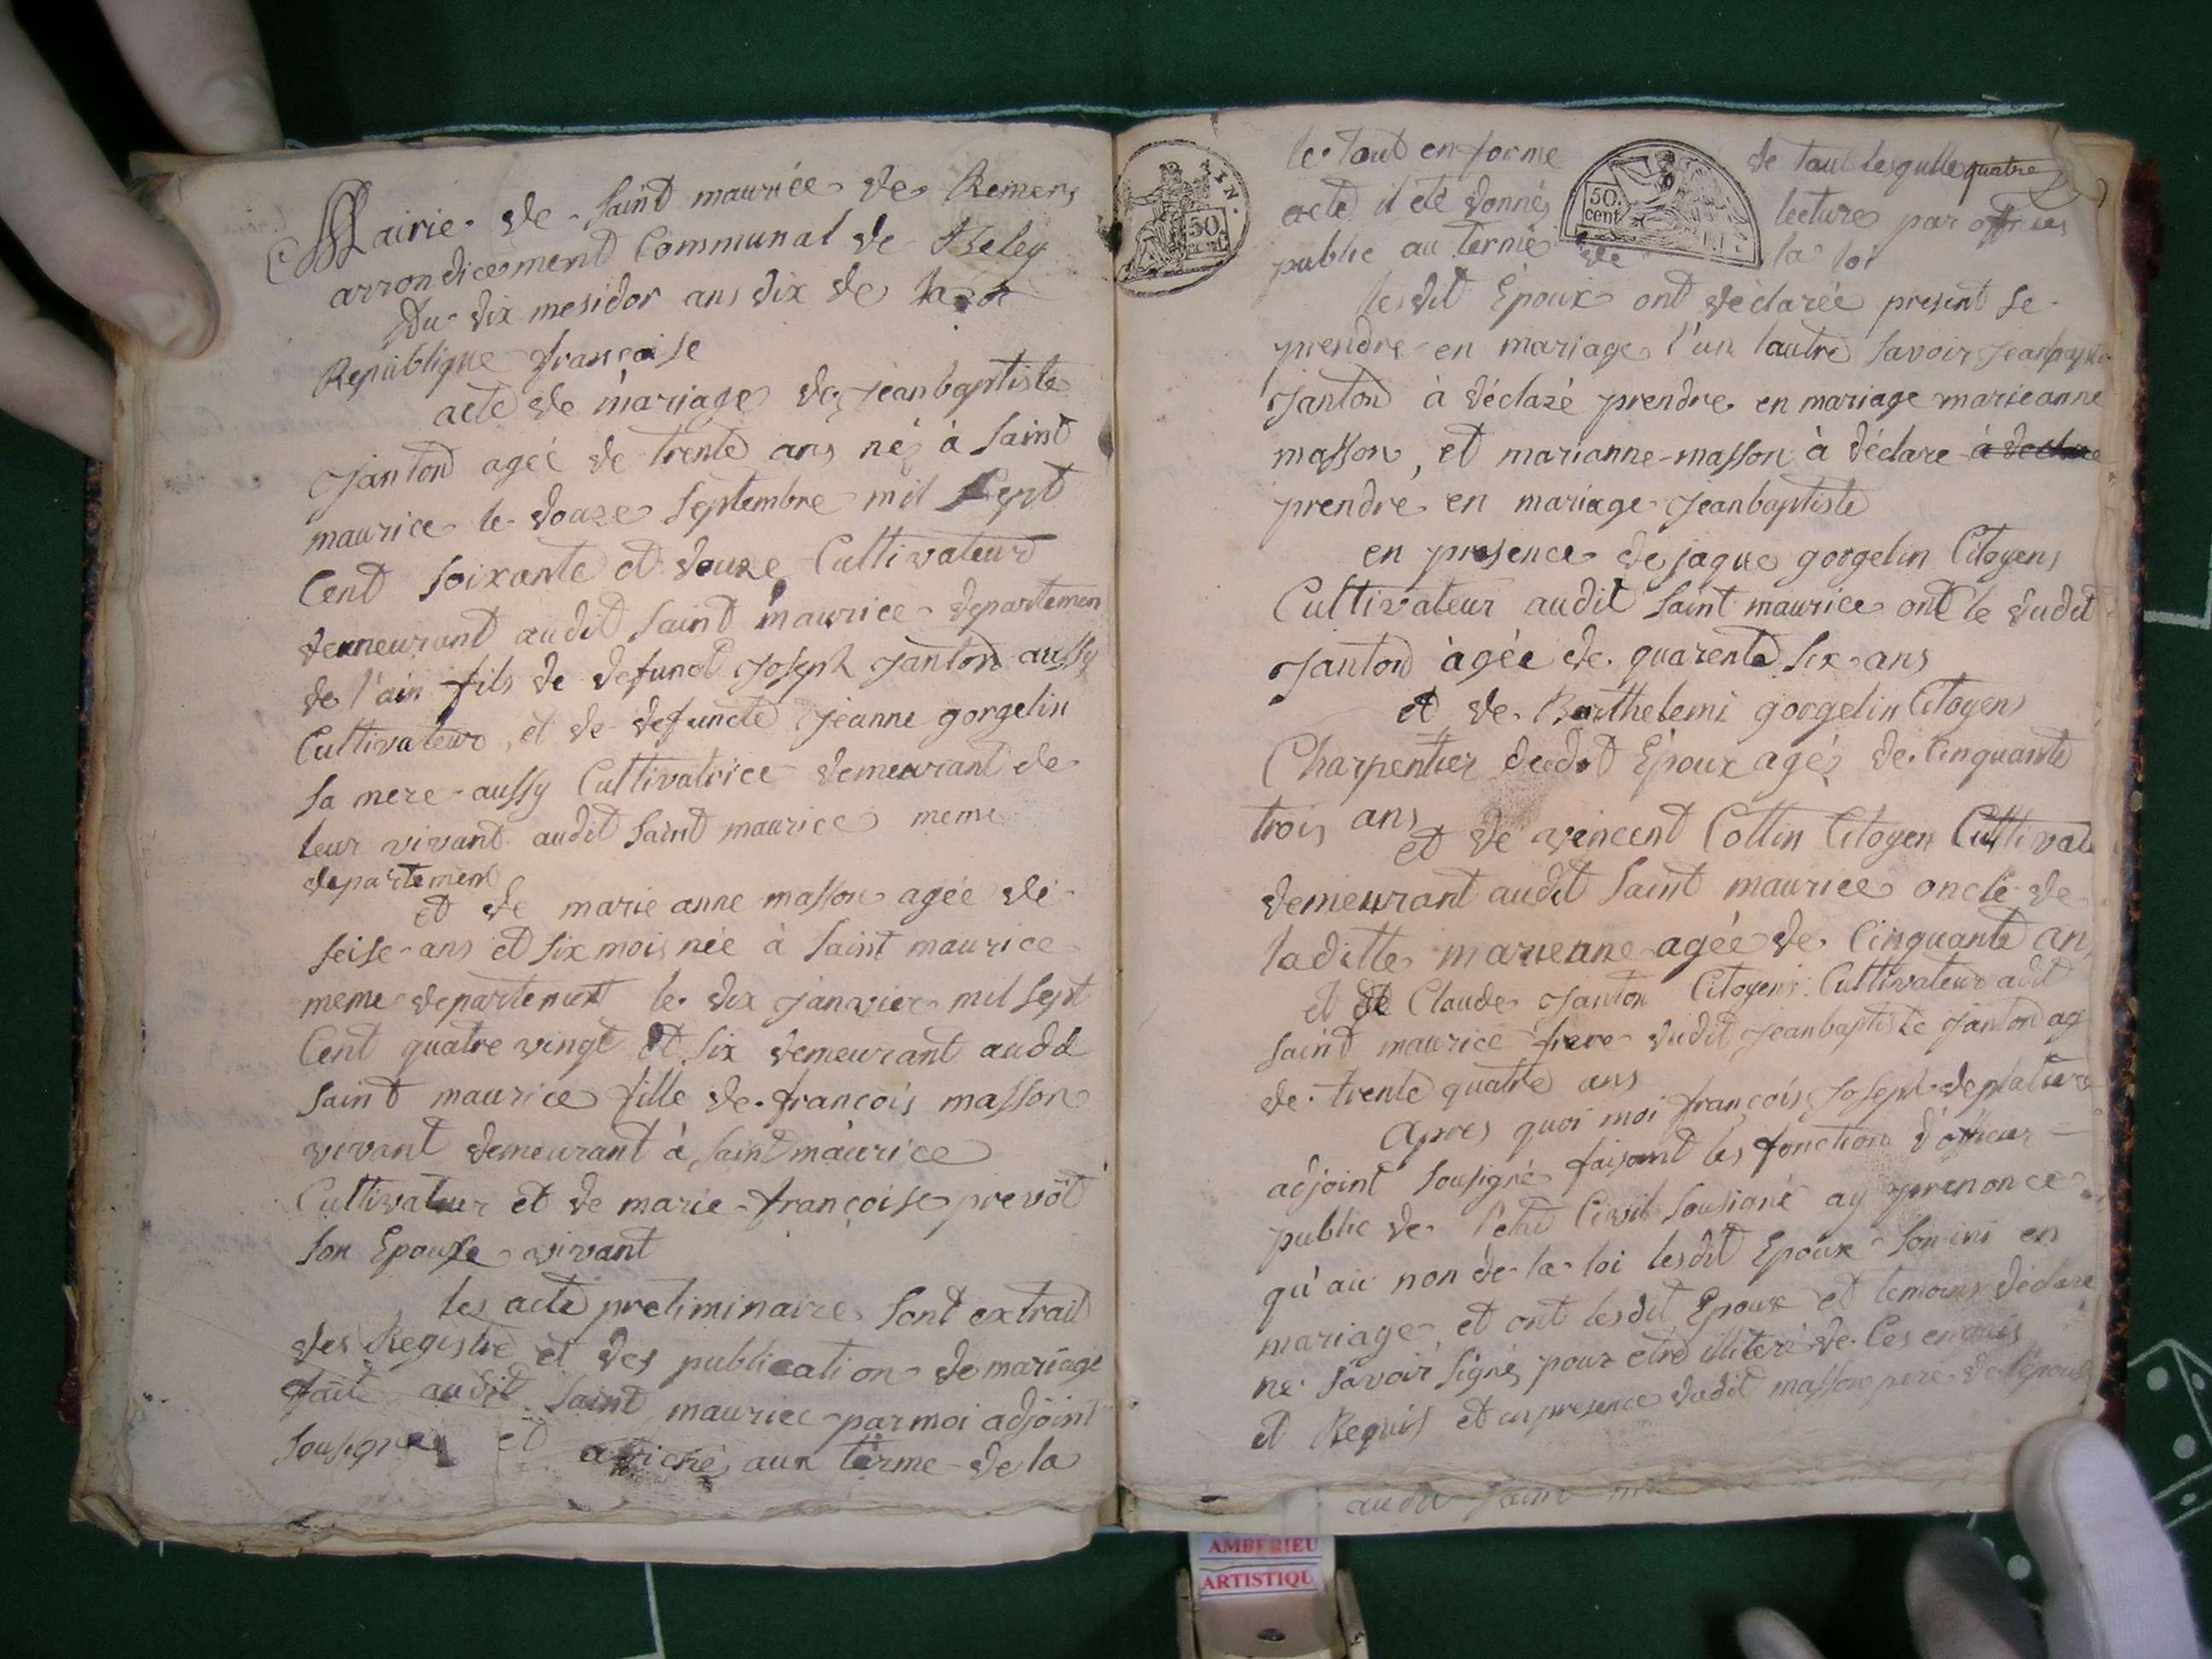 Mairie de Saint mauriée de Remens
arrondicement Communal de Beley
Du dix mesidor ans dix de la
Republique française
acte de mariage de jeanbaptiste
janton agée de trente ans né à Saint
maurice le douze Septembre mil Sept
Cent soixante et douze Cultivateur
demeurant audit Saint maurice departemen
de l'ain fils de defunct joseph janton aussy
Cultivateur, et de defuncte jeanne gorgelin
Sa mere aussy Cultivatrice demeurant de
leur vivant audit Saint maurice meme
departement
et de marie anne masson agée de
seise ans et six mois née à Saint maurice
meme departement le dix janvier mil Sept
Cent quatre vingt et Six demeurant audd
Saint maurice fille de francois masson
vivant demeurant à Saint maurice
Cultivateur et de marie françoise prevôt
Son Epouse vivant
les acte preliminaire Sont extrait
des Registre et des publication de mariage
faite audit Saint maurice par moi adjoint
Sousigné et affiché aux terme de la
le tout en forme de tout lesquelle quatre
acte il eté donné lecture par officier
public au terme de la loi
AIN.
50
cent
50.
cent
lesdit Epoux ont declarée present se
prendre en mariage l'un lautre Savoir jeanbaptis
janton à déclaré prendre en mariage marieanne
masson, et marianne masson à déclare à declare
prendre en mariage jeanbaptiste
en presence de jaque gorgelin Citoyens
Cultivateur audit Saint maurice oncle dudit
janton àgée de quarente Six ans
et de Barthelemi gorgelin Citoyens
Charpentier dudit Epoux agé de Cinquante
trois ans
et de vincent Collin Citoyen Cultivat
demeurant audit Saint maurice oncle de
laditte marienne agée de Cinquante an
et de Claude janton Citoyens Cultivateur adit
Saint maurice frere dudit jeanbaptiste janton ag
de trente quatre ans
Apres quoi moi françois Joseph deplature
adjoint Sousigné faisant les fonction d'officier
public de l'etat Civil Sousigné ay prenonce
qu'au non de la loi lesdit Epoux Son uni en
mariage, et ont lesdit Epoux et temoins declare
ne Savoir Signé pour etre illiteré de Ces enquis
et Requis et en presence dudit masson pere de l'epouse
audit Saint
AMBERIEU
ARTISTIQU